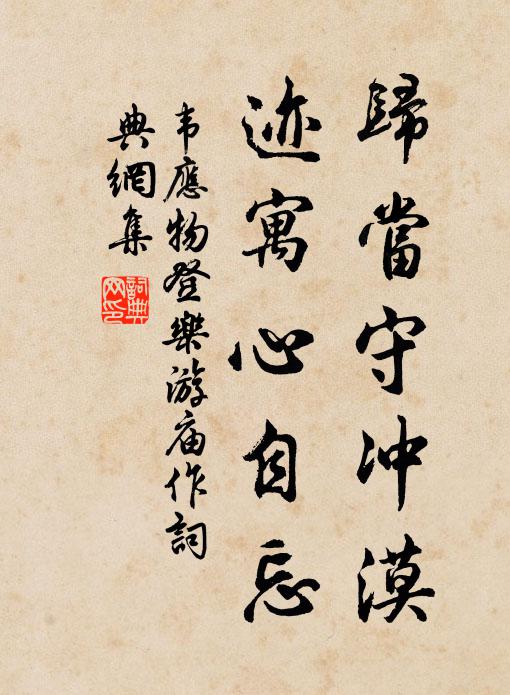 歸當守冲漠
迹寓心自忘
韦應物登樂游庙作詞
典網集
詞典
网印